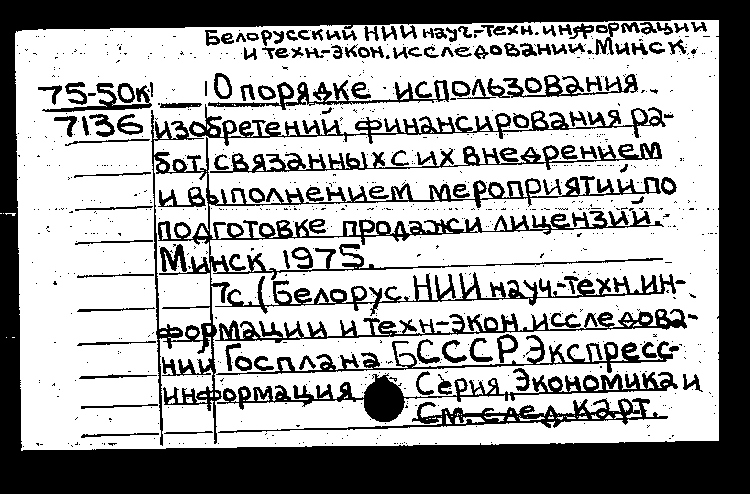 Белорусский НИИ науч.-техн. информации
и техн.-экон. исследований. Минск.
75-50к О порядке использования
7136 изобретений, финансирования ра-
бот, связанных с их внедрением
и выполнением мероприятий по
подготовке продажи лицензий.
Минск, 1975.
7с. (Белорус. НИИ науч.-техн. ин-
формации и техн-экон. исследова-
ний Госплана БССР. Экспресс-
информация Серия „Экономика и
См. след. карт.